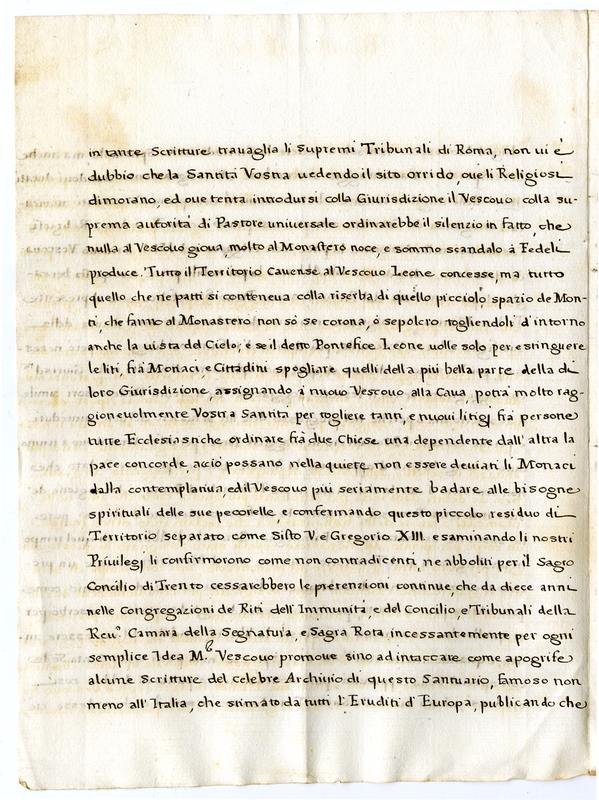 in tante Scritture travaglia li supremi Tribunali di Roma, non ui è
dubbio che la Santità Vostra uedendo il sito orrido, oue li Religiosi
dimorano, ed oue tenta introdursi colla Giurisdizione il Vescouo colla su-
prema autorità di Pastore uniuersale ordinarebbe il silenzio in fatto, che
nulla al Vescouo gioua, molto al Monastero noce, e sommo scandalo à Fedeli
produce. Tutto il Territorio Cauense al Vescouo Leone concesse, ma tutto
quello che ne patti si conteneua colla riserba di quello picciolo spazio de Mon-
ti, che fanno al Monastero non sò se corona, ò sepolcro togliendoli d'intorno
anche la uista del Cielo; e se il detto Pontefice Leone uolle solo per estinguere
le liti, frà Monaci, e Cittadini spogliare quelli della più bella parte della di
loro Giurisdizione, assignando i nuouo Vescouo alla Caua, potrà molto rag-
gioneuolmente Vostra Santità per togliere tanti, e nuoui litigj frà persone
tutte Ecclesiastiche ordinare frà due Chiese una dependente dall'altra la
pace concorde, acciò possano nella quiete non essere deuiati li Monaci
dalla contemplatiua, ed il Vescouo più seriamente badare alle bisogne
spirituali delle sue pecorelle, e confermando questo piccolo residuo di
Territorio separato come Sisto V. e Gregorio XIII. esaminando li nostri
Priuilegj li confirmorono come non contradicenti, ne abboliti per il Sagro
Concilio di Trento cessarebbero le pretenzioni continue, che da diece anni
nelle Congregazioni de Riti dell'Immunità, e del Concilio, e Tribunali della
Reu.ª Camara della Segnatura, e Sagra Rota incessantemente per ogni
semplice Idea M.r Vescouo promoue sino ad intaccare come apogrife
alcune Scritture del celebre Archiuio di questo Santuario, famoso non
meno all'Italia, che stimato da tutti l'Eruditi d'Europa, publicando che